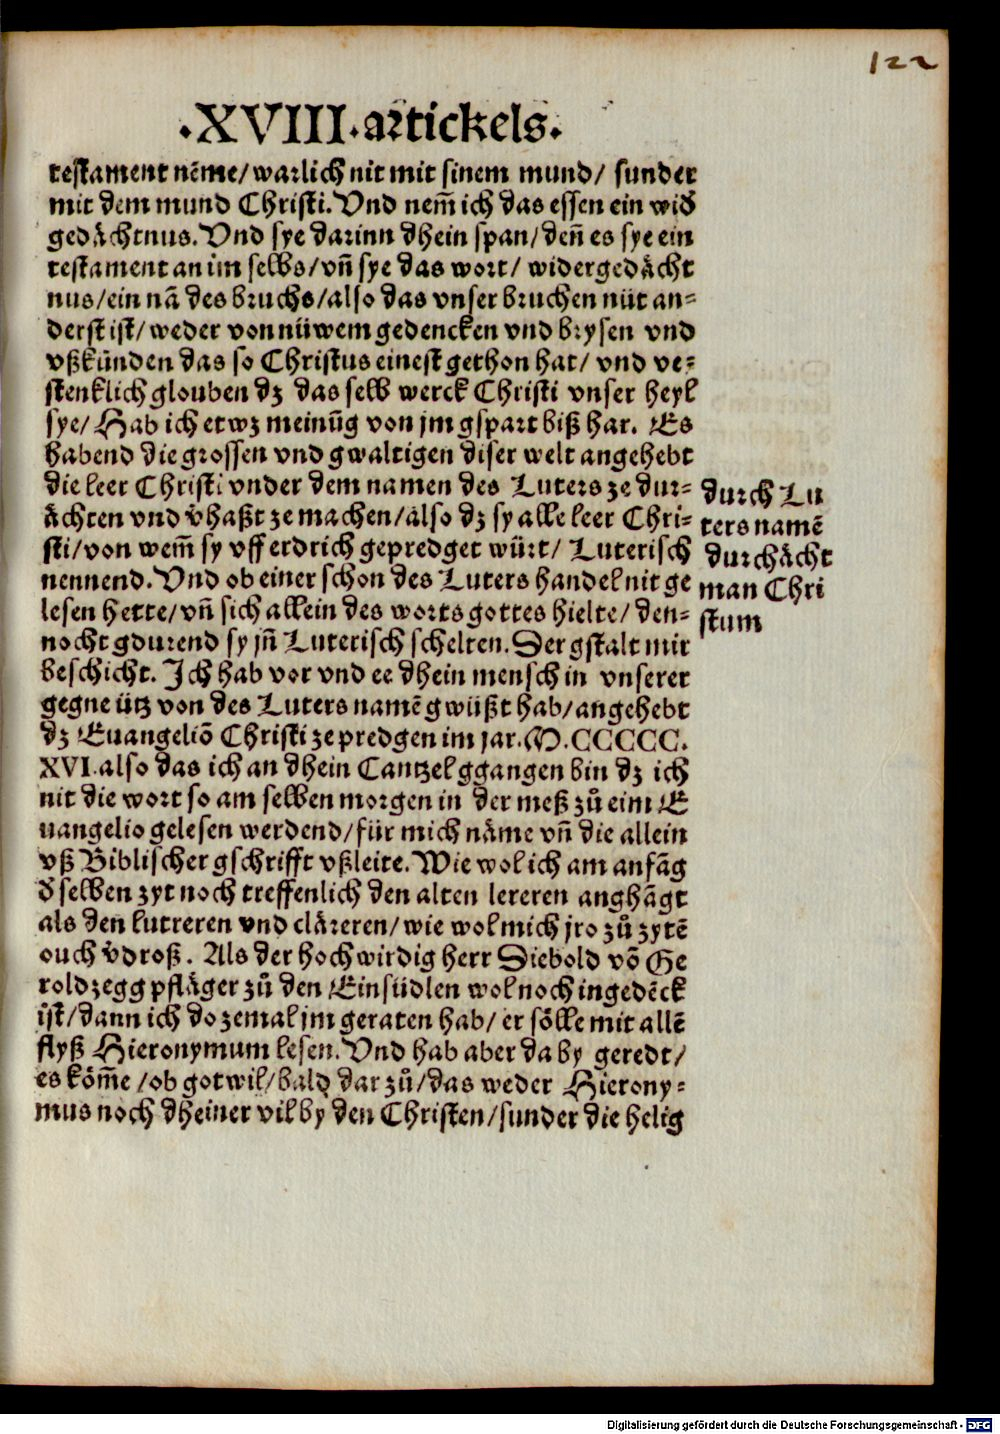 122
.XVIII.artickels.
testament nēme/warlich nit mit sinem mund/ sunder
mit dem mund Christi. Vnd nem̄ ich das essen ein wid̓
gedächtnus. Vnd sye darinn dhein span/den̄ es sye ein
testament an im selbs/vn̄ sye das wort/ widergedächt
nus/ein nā des bruchs/also das vnser bruchen nüt an-
derst ist/weder von nüwem gedencken vnd brysen vnd
vßkünden das so Christus einest gethon hat/ vnd ve-
stenklich glouben dz das selb werck Christi vnser heyl
sye/Hab ich etwz meinūg von jm gspart biß har. Es
habend die grossen vnd gwaltigen diser welt angehebt
die leer Christi vnder dem namen des Luters ze dur-
ächten vnd v̓haßt ze machen/also dz sy alle leer Chri-
sti/von wem̄ sy vff erdrich gepredget würt/ Luterisch
nennend. Vnd ob einer schon des Luters handel nit ge
lesen hette/vn̄ sich allein des worts gottes hielte/ den-
nocht gdurend sy jn̄ Luterisch schelten. Der gstalt mir
beschicht. Ich hab vor vnd ee dhein mensch in vnserer
gegne ütz von des Luters namē gwüßt hab/angehebt
dz Euangeliō Christi ze predgen im jar. M.CCCCC.
XVI. also das ich an dhein Cantzel ggangen bin dz ich
nit die wort so am selben morgen in der meß zů eim E
uangelio gelesen werdend/für mich näme vn̄ die allein
vß Biblischer gschrifft vßleite. Wie wol ich am anfāg
d̓ selben zyt noch treffenlich den alten lereren anghāgt
als den lutreren vnd cläreren/wie wol mich jro zů zytē
ouch v̓droß. Als der hochwirdig herr Diebold vō Ge
roldzegg pfläger zů den Einsidlen wol noch ingedēck
ist/dann ich do zemal jm geraten hab/ er sölle mit allē
flyß Hieronymum lesen. Vnd hab aber da by geredt/
es köm̄e/ob got wil/bald dar zů/das weder Hierony-
mus noch dheiner vil by den Christen/sunder die helig
durch Lu
ters namē
durchächt
man Chri
stum
Digitalisierung gefördert durch die Deutsche Forschungsgemeinschaft - DFG